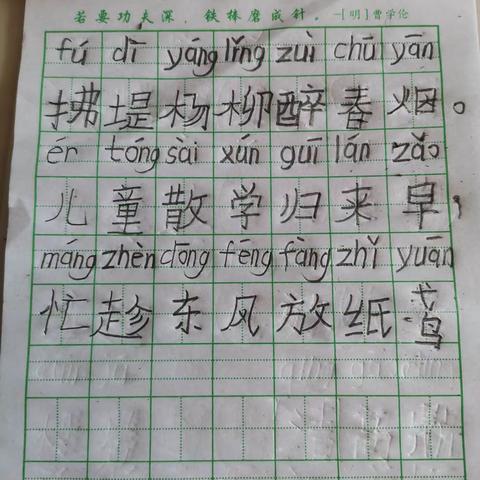 若要功夫深，铁棒磨成针。—[明]曹学佺
fú dī yáng lǐng zuì chū yān
拂堤杨柳醉春烟。
ér tóng sài xún guī lán zǎo
儿童散学归来早，
máng zhèn dōng fēng fàng zhǐ yuān
忙趁东风放纸鸢